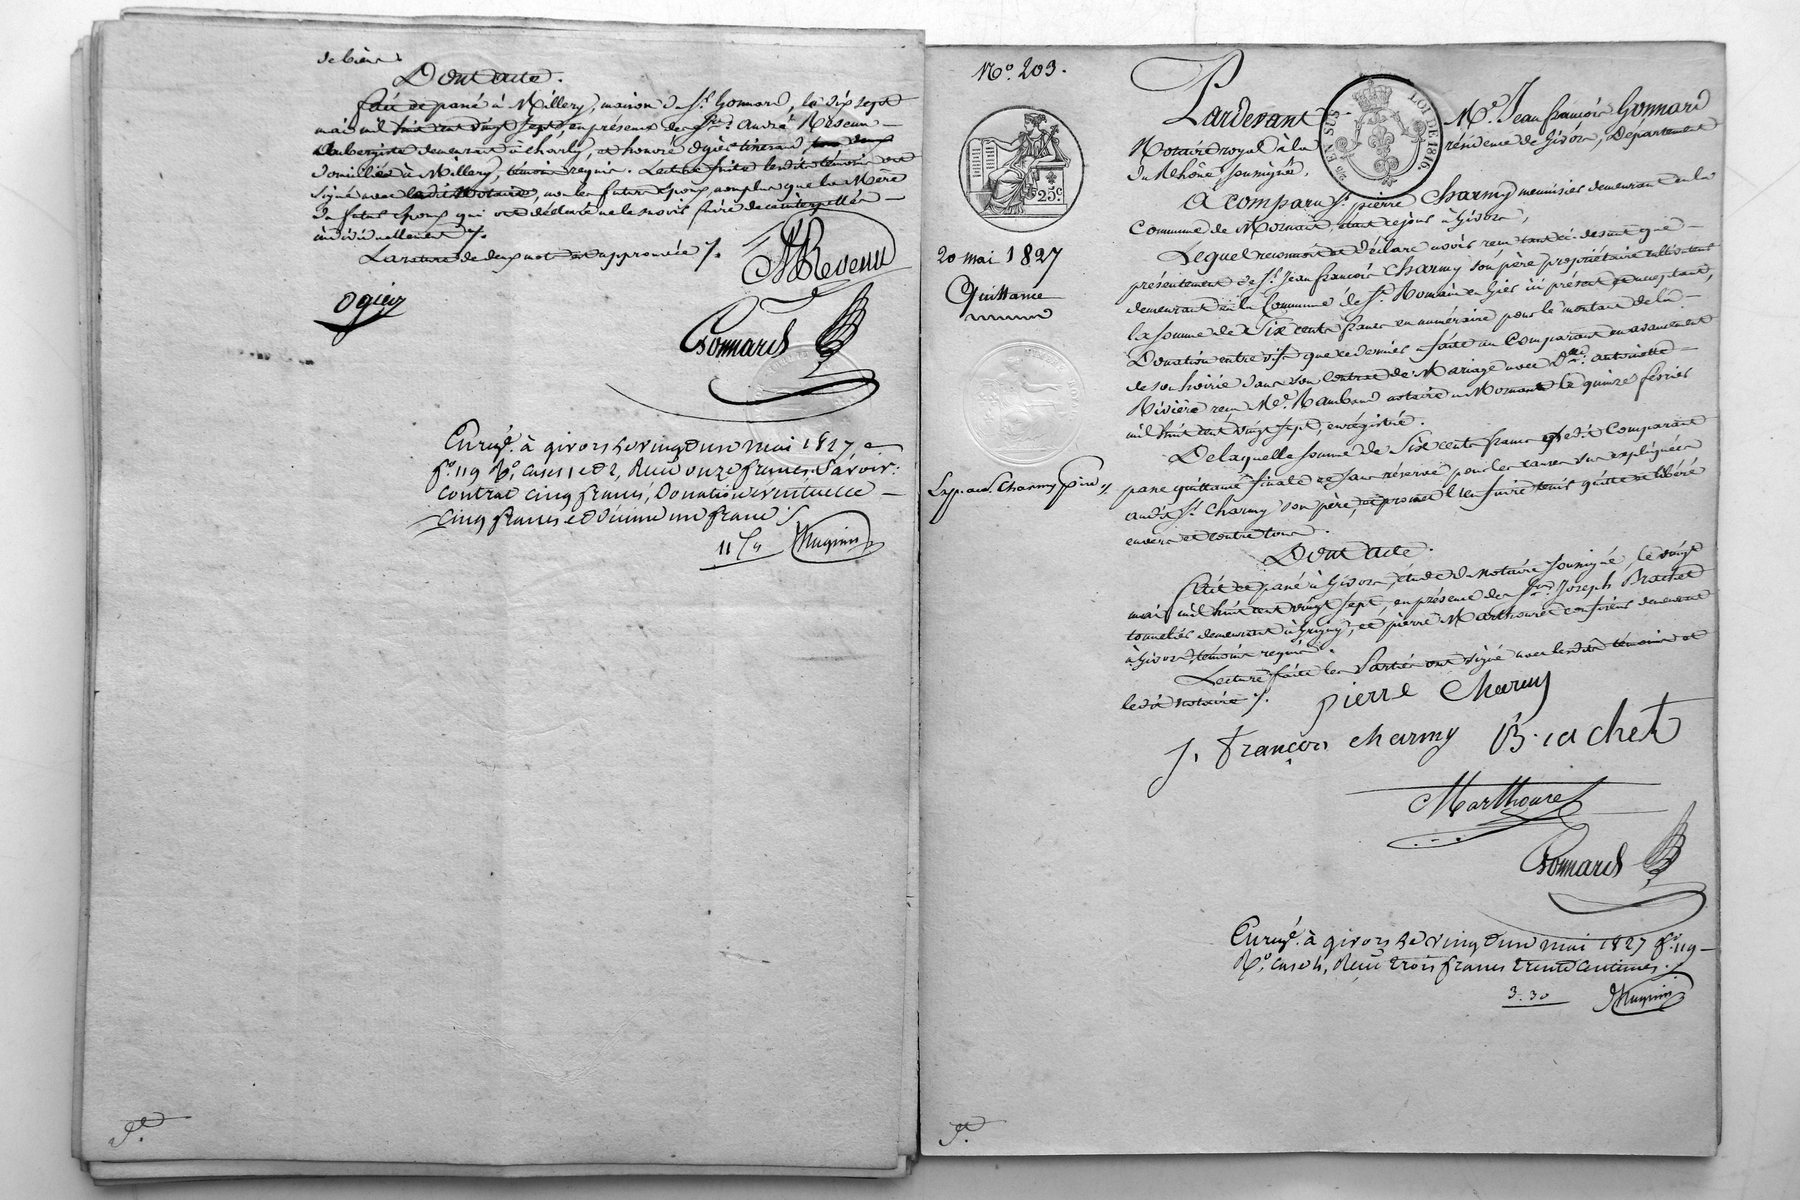 de bien.
Dont acte.
fait et passé à Millery, maison du Sr. Gonnard, le dix sept
mai mil huit cent vingt sept, en présence de Srs. André Revenu
aubergiste demeurant à Charly, et honoré Ogier
domiciliés à Millery, témoins requis. Lecture faite lesdits témoins ont
signé avec ledit Notaire, non les futurs époux non plus que la Mère
du futur époux qui ont déclaré ne le savoir faire de ce interpellés
individuellement /.
La rature de deux mots est approuvée /.
ARevenu
Ogier
Gonnard
Enregé. à givors le vingt un mai 1827
fo. 119 Ro. cases 1 et 2, Reçu onze francs, Savoir:
Contrat cinq francs, Donation éventuelle
cinq francs et décime un franc /.
11 fr
Huguin
No. 203.
20 mai 1827
Quittance
25c
EN SUS
LOI DE 1816
Pardevant Me. Jean françois Gonnard
Notaire royal à la résidence de Givors, Département
du Rhône, soussigné,
A comparu Sr. pierre Charmy meunier demeurant en la
Commune de Mornant, étant ce jour à Givors,
Lequel reconnait et déclare avoir reçu tant ci-devant que
présentement de Sr. Jean françois Charmy son père propriétaire cultivateur
demeurant en la Commune de St. Romain en Gier ici présent et acceptant,
la somme de Six cents francs en numéraire pour le montant de la
Donation entre vifs que ce dernier a faite au Comparant en avancement
de son hoirie dans son Contrat de Mariage avec Dlle. antoinette
Rivière reçu Me. Rambaud notaire à Mornant le quinze février
mil huit cent vingt sept, enregistré.
De laquelle somme de Six cents francs ledit Comparant
passe quittance finale et sans réserve pour les causes sus expliquées
audit Sr. Charmy son père, et promet l'en faire tenir quitte et libéré
envers et contre tous.
Exp. au Sr. Charmy père
Dont Acte.
fait et passé à Givors, étude du notaire soussigné, le vingt
mai mil huit cent vingt sept, en présence de Srs. Joseph Brachet
tonnelier demeurant à Grigny, et pierre Marthouret demeurant
à Givors, témoins requis.
Lecture faite les Parties ont signé avec lesdits témoins et
ledit notaire /.
pierre charmy
J. françois charmy
Brachet
Marthouret
Gonnard
Enregé. à givors le vingt un mai 1827 fo. 119
Ro. case 4, Reçu trois francs trente centimes.
3. 30
Huguin